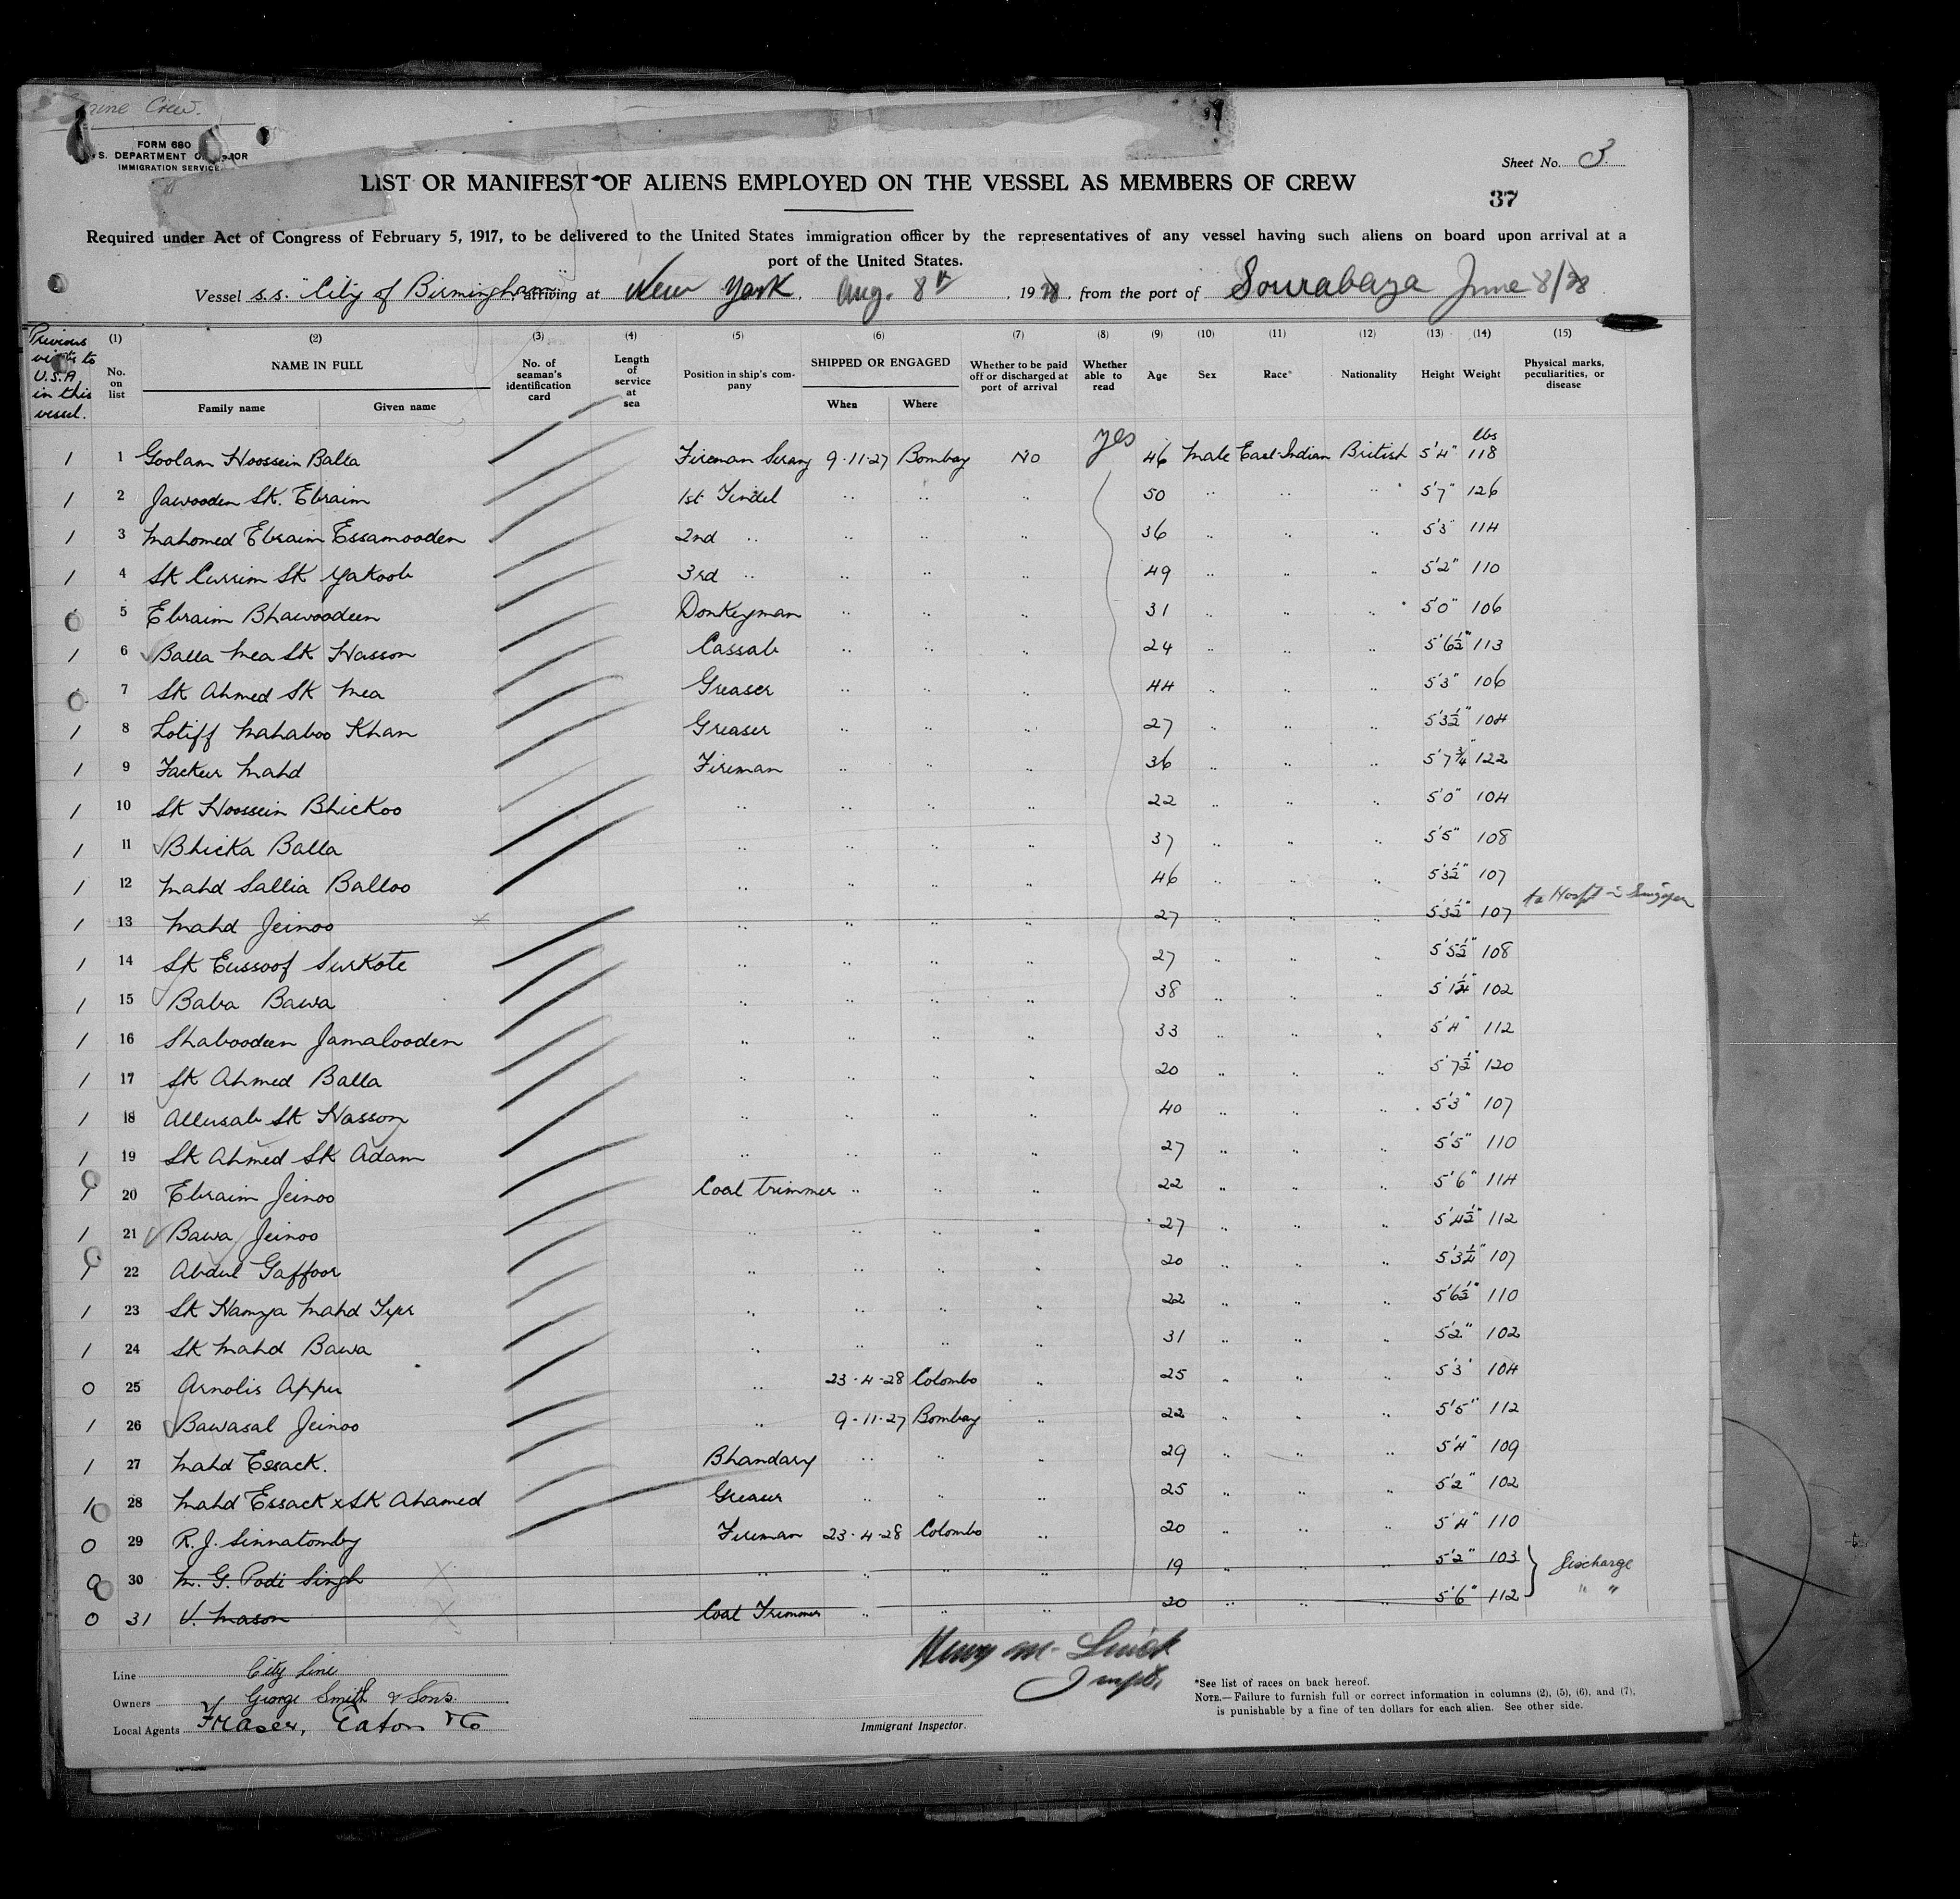 Crew.
FORM 680
S. DEPARTMENT OF LABOR
IMMIGRATION SERVICE
Sheet No. 3
LIST OR MANIFEST OF ALIENS EMPLOYED ON THE VESSEL AS MEMBERS OF CREW
37
Required under Act of Congress of February 5, 1917, to be delivered to the United States immigration officer by the representatives of any vessel having such aliens on board upon arrival at a
port of the United States.
Vessel s.s. "City of Birmingham" arriving at New York. Aug. 8th, 1928, from the port of Sourabaya June 8/28
Previous visits to U.S.A in this vessel. (1) No. on list (2) NAME IN FULL Family name Given name (3) No. of seaman's identification card (4) Length of service at sea (5) Position in ship's company (6) SHIPPED OR ENGAGED When Where (7) Whether to be paid off or discharged at port of arrival (8) Whether able to read (9) Age (10) Sex (11) Race* (12) Nationality (13) Height (14) Weight (15) Physical marks, peculiarities, or disease
1 1 Goolam Hoossein Balla Fireman Serang 9-11-27 Bombay No yes 46 Male East Indian British 5'4" lbs 118
1 2 Jawooden Sk. Ebraim 1st Tindel .. .. .. 50 .. .. .. 5'7" 126
1 3 Mahomed Ebraim Essamooden 2nd .. .. .. .. 36 .. .. .. 5'3" 114
1 4 Sk Currim Sk Yakoob 3rd .. .. .. .. 49 .. .. .. 5'2" 110
0 5 Ebraim Bhawoodeen Donkeyman .. .. .. 31 .. .. .. 5'0" 106
1 6 Balla Mea Sk Hasson Cassab .. .. .. 24 .. .. .. 5'6½" 113
0 7 Sk Ahmed Sk Mea Greaser .. .. .. 44 .. .. .. 5'3" 106
1 8 Lotiff Mahaboo Khan Greaser .. .. .. 27 .. .. .. 5'3½" 104
1 9 Fackeer Mahd Fireman .. .. .. 36 .. .. .. 5'7¾" 122
1 10 Sk Hoossein Bhickoo .. .. .. .. 22 .. .. .. 5'0" 104
1 11 Bhicka Balla .. .. .. .. 37 .. .. .. 5'5" 108
1 12 Mahd Sallia Balloo .. .. .. .. 46 .. .. .. 5'3½" 107
1 13 Mahd Jeinoo .. .. .. .. 27 .. .. .. 5'3½" 107 to Hosp
1 14 Sk Eussoof Surkote .. .. .. .. 27 .. .. .. 5'5½" 108
1 15 Baba Bawa .. .. .. .. 38 .. .. .. 5'1¼" 102
1 16 Shaboodeen Jamalooden .. .. .. .. 33 .. .. .. 5'4" 112
1 17 Sk Ahmed Balla .. .. .. .. 20 .. .. .. 5'7½" 120
1 18 Allusab Sk Hasson .. .. .. .. 40 .. .. .. 5'3" 107
1 19 Sk Ahmed Sk Adam .. .. .. .. 27 .. .. .. 5'5" 110
1 20 Ebraim Jeinoo Coal trimmer .. .. .. 22 .. .. .. 5'6" 114
1 21 Bawa Jeinoo .. .. .. .. 27 .. .. .. 5'4½" 112
1 22 Abdul Gaffoor .. .. .. .. 20 .. .. .. 5'3¼" 107
1 23 Sk Hamza Mahd .. .. .. .. 22 .. .. .. 5'6½" 110
1 24 Sk Mahd Bawa .. .. .. .. 31 .. .. .. 5'2" 102
0 25 Arnolis Appu .. 23-4-28 Colombo .. 25 .. .. .. 5'3' 104
1 26 Bawasal Jeinoo .. 9-11-27 Bombay .. 22 .. .. .. 5'5" 112
1 27 Mahd Essack. Bhandary .. .. .. 29 .. .. .. 5'4" 109
1 28 Mahd Essack x Sk Ahamed Greaser .. .. .. 25 .. .. .. 5'2" 102
0 29 R. J. Sinnatomby Fireman 23-4-28 Colombo .. 20 .. .. .. 5'4" 110
0 30 M. G. Podi Singh .. .. .. .. 19 .. .. .. 5'2" 103 Discharge
0 31 V. Mason Coal Trimmer .. .. .. 20 .. .. .. 5'6" 112 " "
Line City Line
Owners George Smith & Sons.
Local Agents Fraser, Eaton & Co
Henry M.
Immigrant Inspector.
*See list of races on back hereof.
NOTE.—Failure to furnish full or correct information in columns (2), (5), (6), and (7),
is punishable by a fine of ten dollars for each alien. See other side.